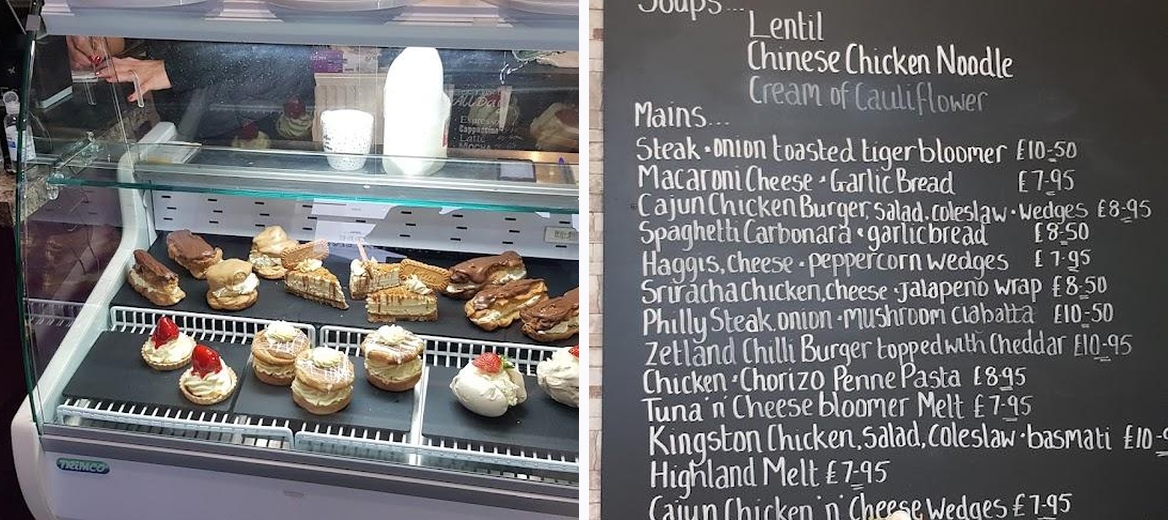 Espresso
Cappuccino
Latte
MOCHA
TRIMCO
Soups...
Lentil
Chinese Chicken Noodle
Cream of Cauliflower
Mains...
Steak · onion toasted tiger bloomer £10-50
Macaroni Cheese · Garlic Bread £7-95
Cajun Chicken Burger, salad, coleslaw · wedges £8-95
Spaghetti Carbonara · garlic bread £8-50
Haggis, cheese · peppercorn wedges £7-95
Sriracha Chicken, cheese · jalapeno wrap £8-50
Philly Steak, onion · mushroom ciabatta £10-50
Zetland Chilli Burger topped with Cheddar £10-95
Chicken · Chorizo Penne Pasta £8-95
Tuna 'n' Cheese bloomer Melt £7-95
Kingston Chicken, Salad, Coleslaw · basmati £10-9
Highland Melt £7-95
Cajun Chicken 'n' Cheese Wedges £7-95